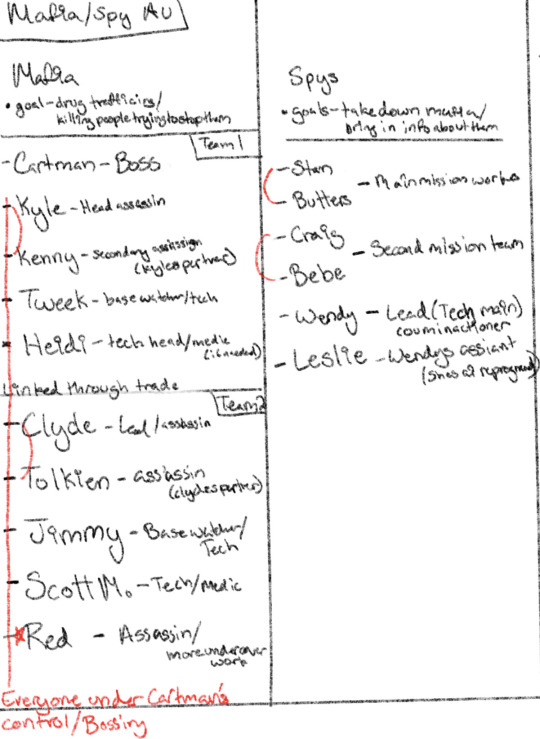 Mafia/Spy AU
Mafia
• goal-drug trafficing/
killing people trying to stop them
Team 1
-Cartman-Boss
-Kyle-Head assassin
-Kenny-secondary assassign
(kyles partner)
-Tweek-base watcher/tech
-Heidi-tech head/medic
(if needed)
Linked through trade
Team 2
-Clyde-Lead/assassin
-Tolkien-assassin
(clydes partner)
-Jimmy-Base watcher/
Tech
-Scott M.-Tech/Medic
-Red - Assassin/
more undercover
work
Everyone under Cartman's
control/Bossing
Spys
• goals-take down mafia/
bring in info about them
-Stan
-Butters
-Main mission works
-Craig
-Bebe
-Second mission team
-Wendy -Lead(Tech main)
-Leslie -Wendys assiant